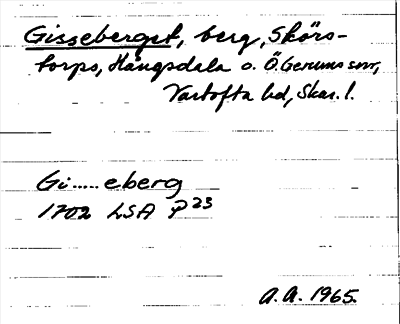 Gisseberget, berg, Skörs-
torps, Hångsdala o. Ö Gerums snr,
Vartofta hd, Skar. l.
Gi.....eberg
1702 LSA P23
A.A. 1965.